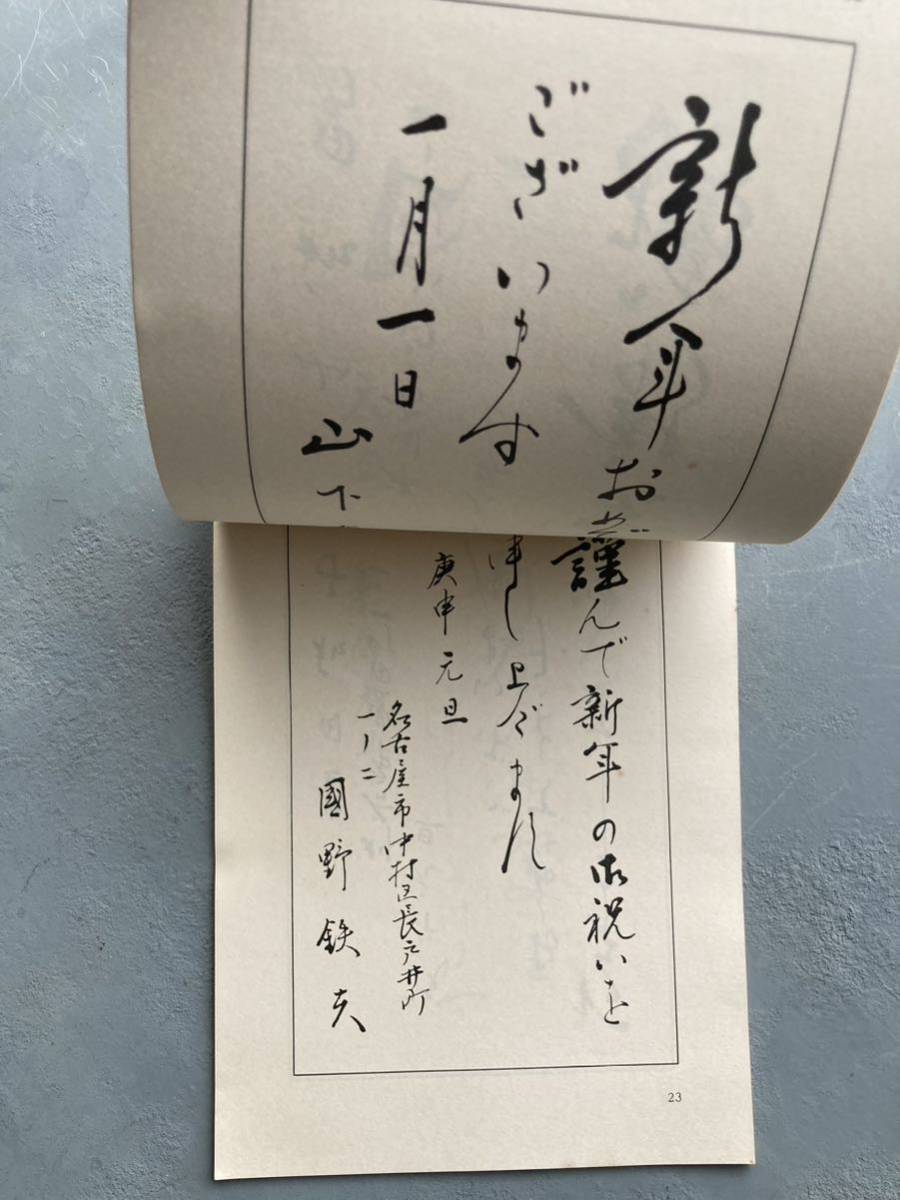 新年お
ございます
一月一日
山下
謹んで新年の御祝いを
申し上げます
庚申元旦
名古屋市中村区長戸井町
一ノ二
國野鉄夫
23